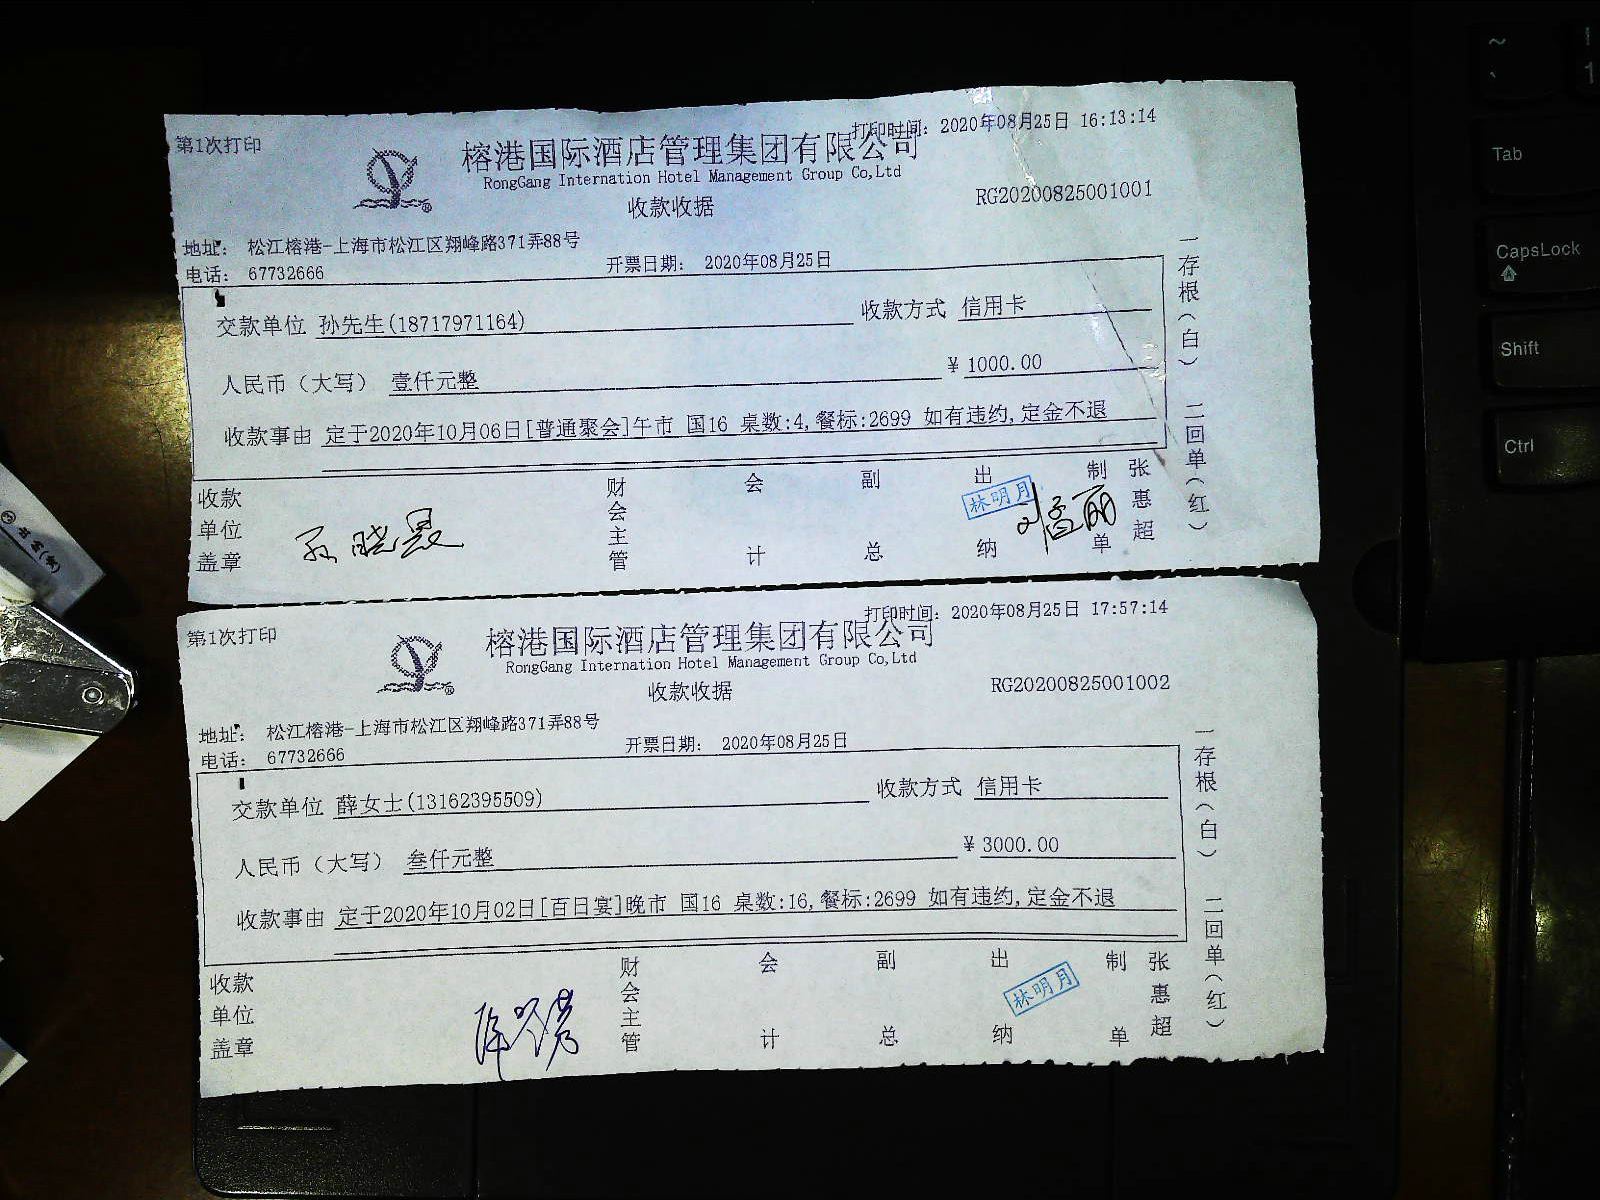 第1次打印
打印时间: 2020年08月25日 16:13:14
榕港国际酒店管理集团有限公司
RongGang Internation Hotel Management Group Co,Ltd
收款收据
RG20200825001001
地址: 松江榕港-上海市松江区翔峰路371弄88号
电话: 67732666
开票日期: 2020年08月25日
交款单位 孙先生(18717971164) 收款方式 信用卡
人民币（大写） 壹仟元整 ¥ 1000.00
收款事由 定于2020年10月06日[普通聚会]午市 国16 桌数:4,餐标:2699 如有违约,定金不退
收款单位盖章 财会主管 会计 副总 出纳 林明月 制单 张惠超
刘孟丽
一存根（白） 二回单（红）
第1次打印
打印时间: 2020年08月25日 17:57:14
榕港国际酒店管理集团有限公司
RongGang Internation Hotel Management Group Co,Ltd
收款收据
RG20200825001002
地址: 松江榕港-上海市松江区翔峰路371弄88号
电话: 67732666
开票日期: 2020年08月25日
交款单位 薛女士(13162395509) 收款方式 信用卡
人民币（大写） 叁仟元整 ¥ 3000.00
收款事由 定于2020年10月02日[百日宴]晚市 国16 桌数:16,餐标:2699 如有违约,定金不退
收款单位盖章 财会主管 会计 副总 出纳 林明月 制单 张惠超
一存根（白） 二回单（红）
~
`
!
1
Tab
CapsLock
Shift
Ctrl